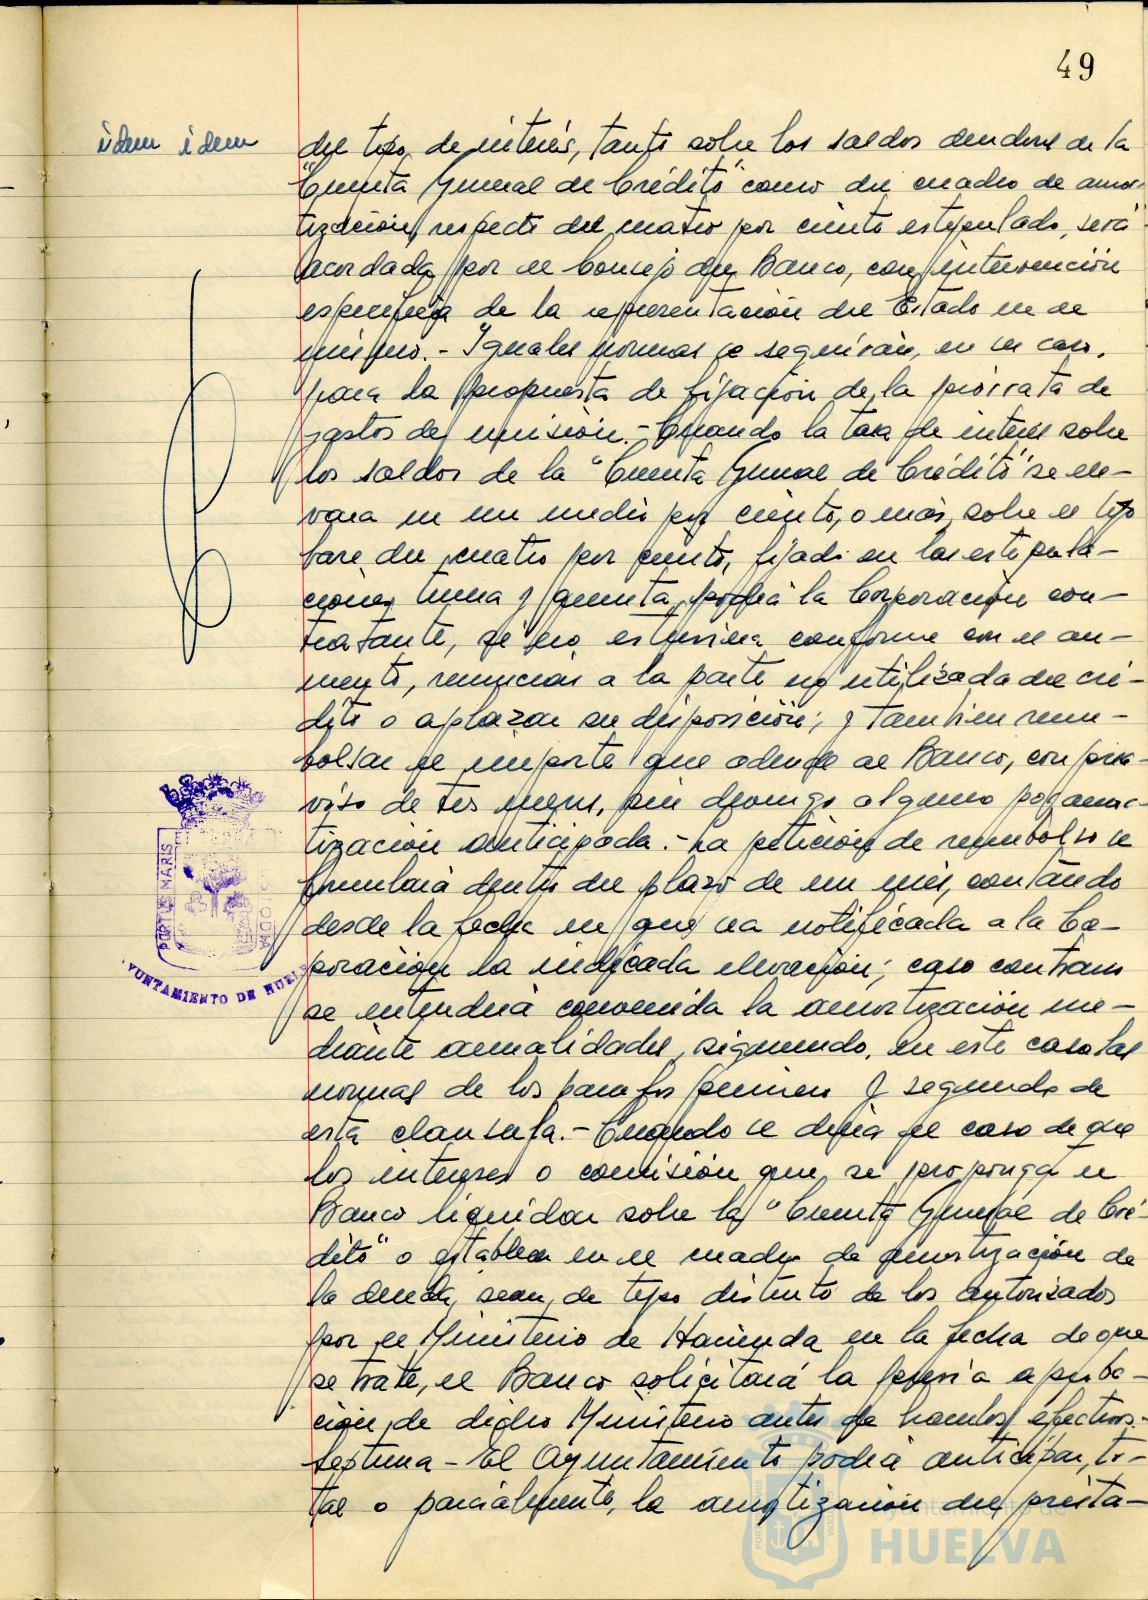 49
idem idem
del tipo de interés, tanto sobre los saldos deudores de la
"Cuenta General de Crédito" como del cuadro de amor-
tización, respecto del cuatro por ciento estipulado, será
acordada por el Consejo del Banco, con intervención
específica de la representación del Estado en el
mismo.- Iguales normas se seguirán, en su caso,
para la propuesta de fijación de la prórrata de
gastos de emisión.- Cuando la tasa de interés sobre
los saldos de la "Cuenta General de Crédito" se ele-
vara en un medio por ciento, o más, sobre el tipo
base del cuatro por ciento, fijado en las estipula-
ciones tercera y quinta, podrá la Corporación con-
tratante, si no estuviera conforme con el au-
mento, renunciar a la parte no utilizada del cré-
dito o aplazar su disposición; y también reem-
bolsar el importe que adeude al Banco, con prea-
viso de tres meses, sin devengo alguno por amor-
tización anticipada.- La petición de reembolso se
formulará dentro del plazo de un mes, contando
desde la fecha en que sea notificada a la Co-
poración la indicada elevación; caso contrario
se entenderá convenida la amortización me-
diante anualidades, siguiendo, en este caso las
normas de los párrafos primero y segundo de
esta clausula.- Cuando se diera el caso de que
los intereses o comisión que se proponga el
Banco liquidar sobre la "Cuenta General de Cré-
dito" o establecer en el cuadro de amortización de
la deuda, sean de tipo distinto de los autorizados
por el Ministerio de Hacienda en la fecha de que
se trate, el Banco solicitará la previa aproba-
ción de dicho Ministerio antes de hacerlos efectivos.-
Septima - El Ayuntamiento podrá anticipar, to-
tal o parcialmente, la amortización del présta-
PORTUS MARIS
AYUNTAMIENTO DE HUELVA
Ayuntamiento de
HUELVA